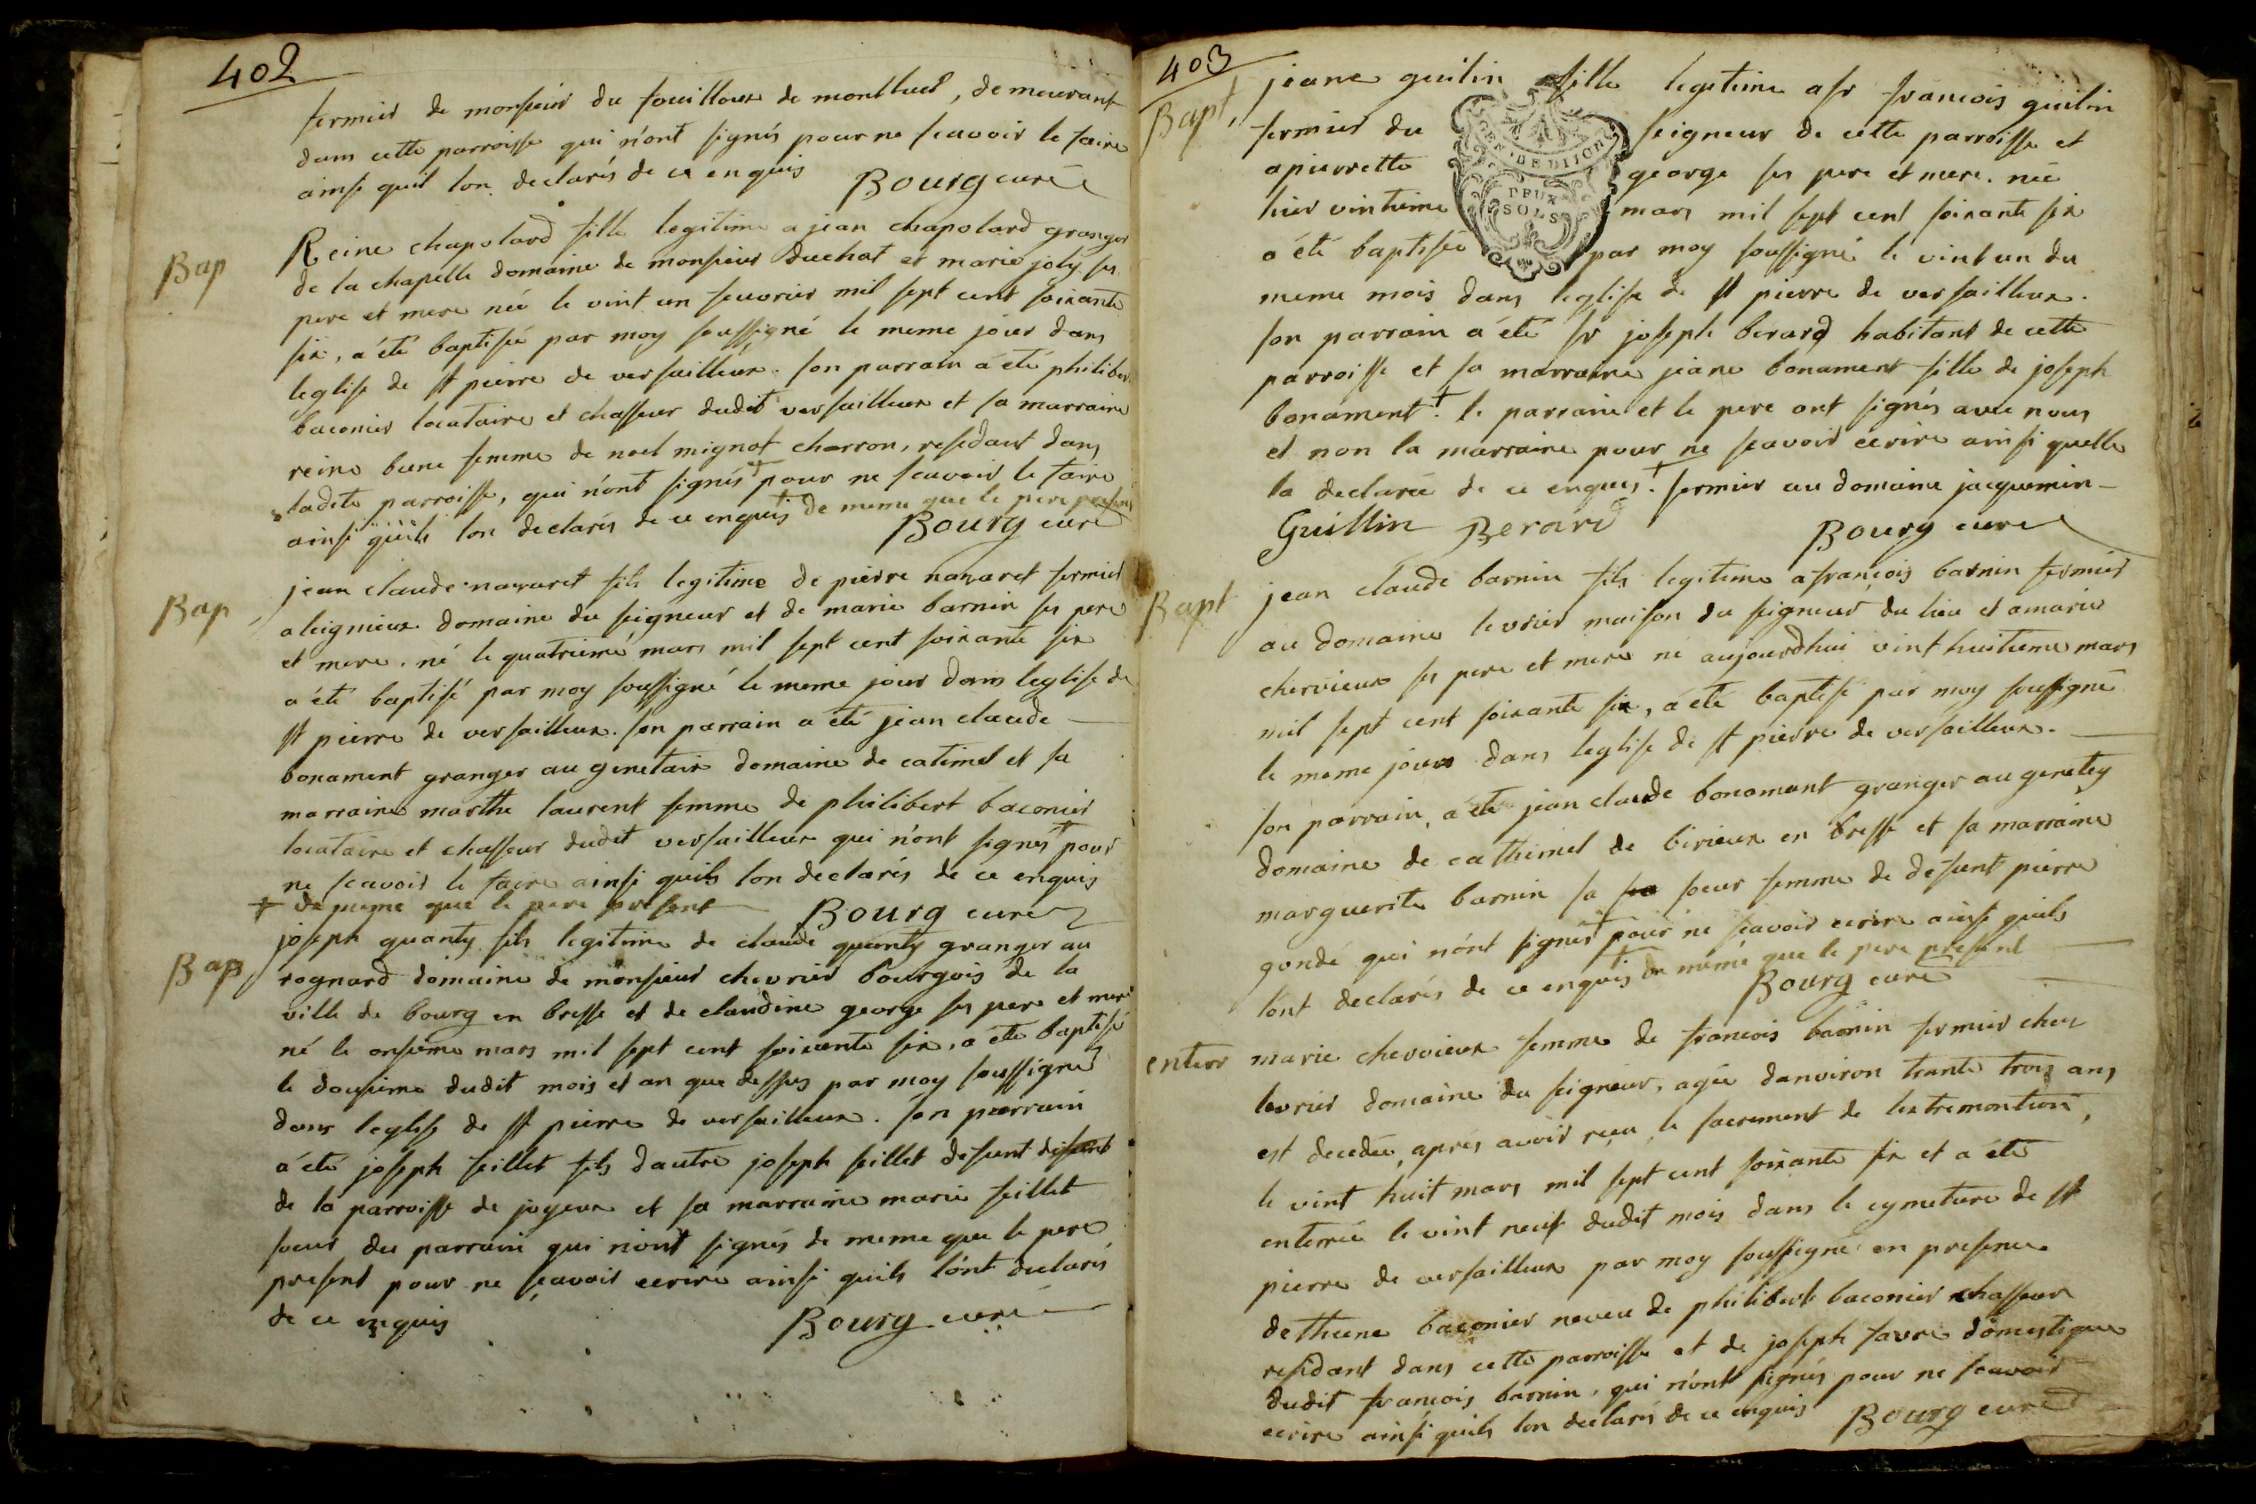 402
fermier de monsieur du fouilloux de montluel, demeurant
dans cette parroisse qui n'ont signés pour ne scavoir le faire
ainsi quil lon declarés de ce enquis Bourg curé
Bap
Reine chapolard fille legitime a jean chapolard granger
de la chapelle domaine de monsieur duchat et marie joly ses
pere et mere née le vint un feuvrier mil sept cent soixante
six, a été baptisée par moy soussigné le meme jour dans
leglise de st pierre de versailleux. son parrain a été philiber
baconier locataire et chasseur dudit versailleux et sa marraine
reine femme de noel mignot charron, residant dans
ladite parroisse, qui n'ont signés + pour ne scavoir le faire
ainsi quils lon declarés de ce enquis + de meme que le pere present
Bourg curé
Bap
jean claude navaret fils legitime de pierre navaret fermier
a leignieux domaine du seigneur et de marie barnin ses pere
et mere. né le quatrieme mars mil sept cent soixante six
a été baptisé par moy soussigné le meme jour dans leglise de
st pierre de versailleux. son parrain a été jean claude
bonament granger au genetair domaine de catimel et sa
marraine marthe laurent femme de philibert baconier
locataire et chasseur dudit versailleux qui n'ont signés + pour
ne scavoir le faire ainsi quils lon declarés de ce enquis
+ de meme que le pere present Bourg curé
Bap
joseph quanty fils legitime de claude quanty granger au
rognard domaine de monsieur chevrier bourgois de la
ville de bourg en bresse et de claudine george ses pere et mere
né le onsieme mars mil sept cent soixante six, a été baptisé
le dousieme dudit mois et an que dessus par moy soussigné
dans leglise de st pierre de versailleux. son parrain
a été joseph feillet fils dautre joseph feillet defunt
de la parroisse de joyeux et sa marraine marie feillet
soeur du parrain qui n'ont signés de meme que le pere
present pour ne scavoir ecrire ainsi quils lont declarés
de ce enquis Bourg curé
403
Bapt
jeane guilin fille legitime a sr francois guilin
fermier du seigneur de cette parroisse et
a pierrette george ses pere et mere. née
hier vintieme mars mil sept cent soixante six
a été baptisée par moy soussigné le vint un du
GEN. DE DIJON
DEUX
SOLS
meme mois dans leglise de st pierre de versailleux.
son parrain a été sr joseph berard habitant de cette
parroisse et sa marraine jeane bonament fille de joseph
bonament + le parrain et le pere ont signés avec nous
et non la marraine pour ne scavoir ecrire ainsi quelle
la declarée de ce enquis. + fermier au domaine jacquemin
Guillin Berard Bourg curé
Bapt
jean claude barnin fils legitime a francois barnin fermier
au domaine levrier maison du seigneur du lieu et a marie
chervieux ses pere et mere né aujourdhui vint huitieme mars
mil sept cent soixante six, a été baptisé par moy soussigné
le meme jour dans leglise de st pierre de versailleux.
son parrain, a été jean claude bonamant granger au genetey
domaine de cathimel de birieux en bresse et sa marraine
marguerite barnin sa soeur femme de defunt pierre
gondé qui n'ont signés + pour ne scavoir ecrire ainsi quils
lont declarés de ce enquis + de même que le pere present
Bourg curé
enterr
marie chervieux femme de francois barnin fermier chez
levrier domaine du seigneur, agée danviron trante trois ans
est decedée, aprés avoir reçu le sacrement de lextremontion,
le vint huit mars mil sept cent soixante six et a été
enterrée le vint neuf dudit mois dans le cymetiere de st
pierre de versailleux par moy soussigné en presence
baconier neveu de philibert baconier chasseur
residant dans cette parroisse et de joseph favre domestique
dudit francois barnin, qui n'ont signés pour ne scavoir
ecrire ainsi quils lon declarés de ce enquis Bourg curé